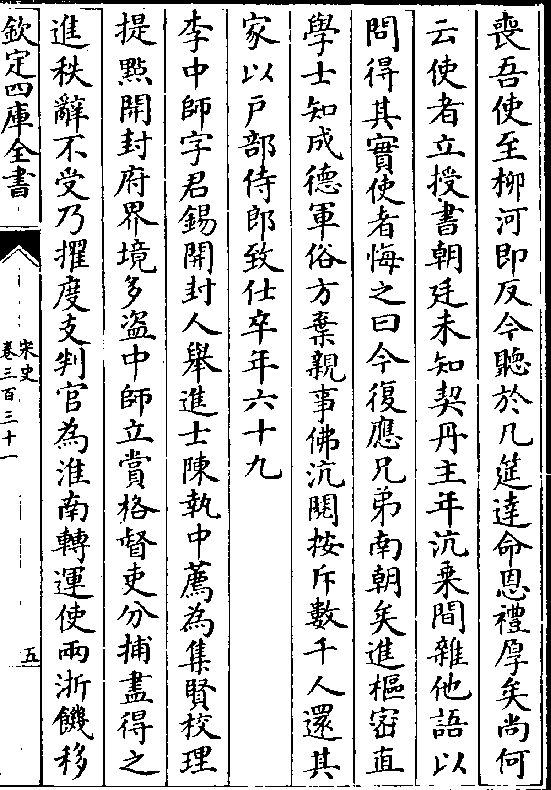 喪吾使至柳河即反今聽於几筵達命恩禮厚矣尚何
云使者立授書朝廷未知契丹主年沆乗間雜他語以
問得其實使者悔之曰今復應兄弟南朝矣進樞宻直
學士知成德軍俗方棄親事佛沆閲按斥數千人還其
家以戸部侍郎致仕卒年六十九
李中師字君錫開封人舉進士陳執中薦為集賢校理
提㸃開封府界境多盗中師立賞格督吏分捕盡得之
進秩辭不受乃擢度支判官為淮南轉運使兩浙饑移
欽定四庫全書
宋史
卷三百三十一
五